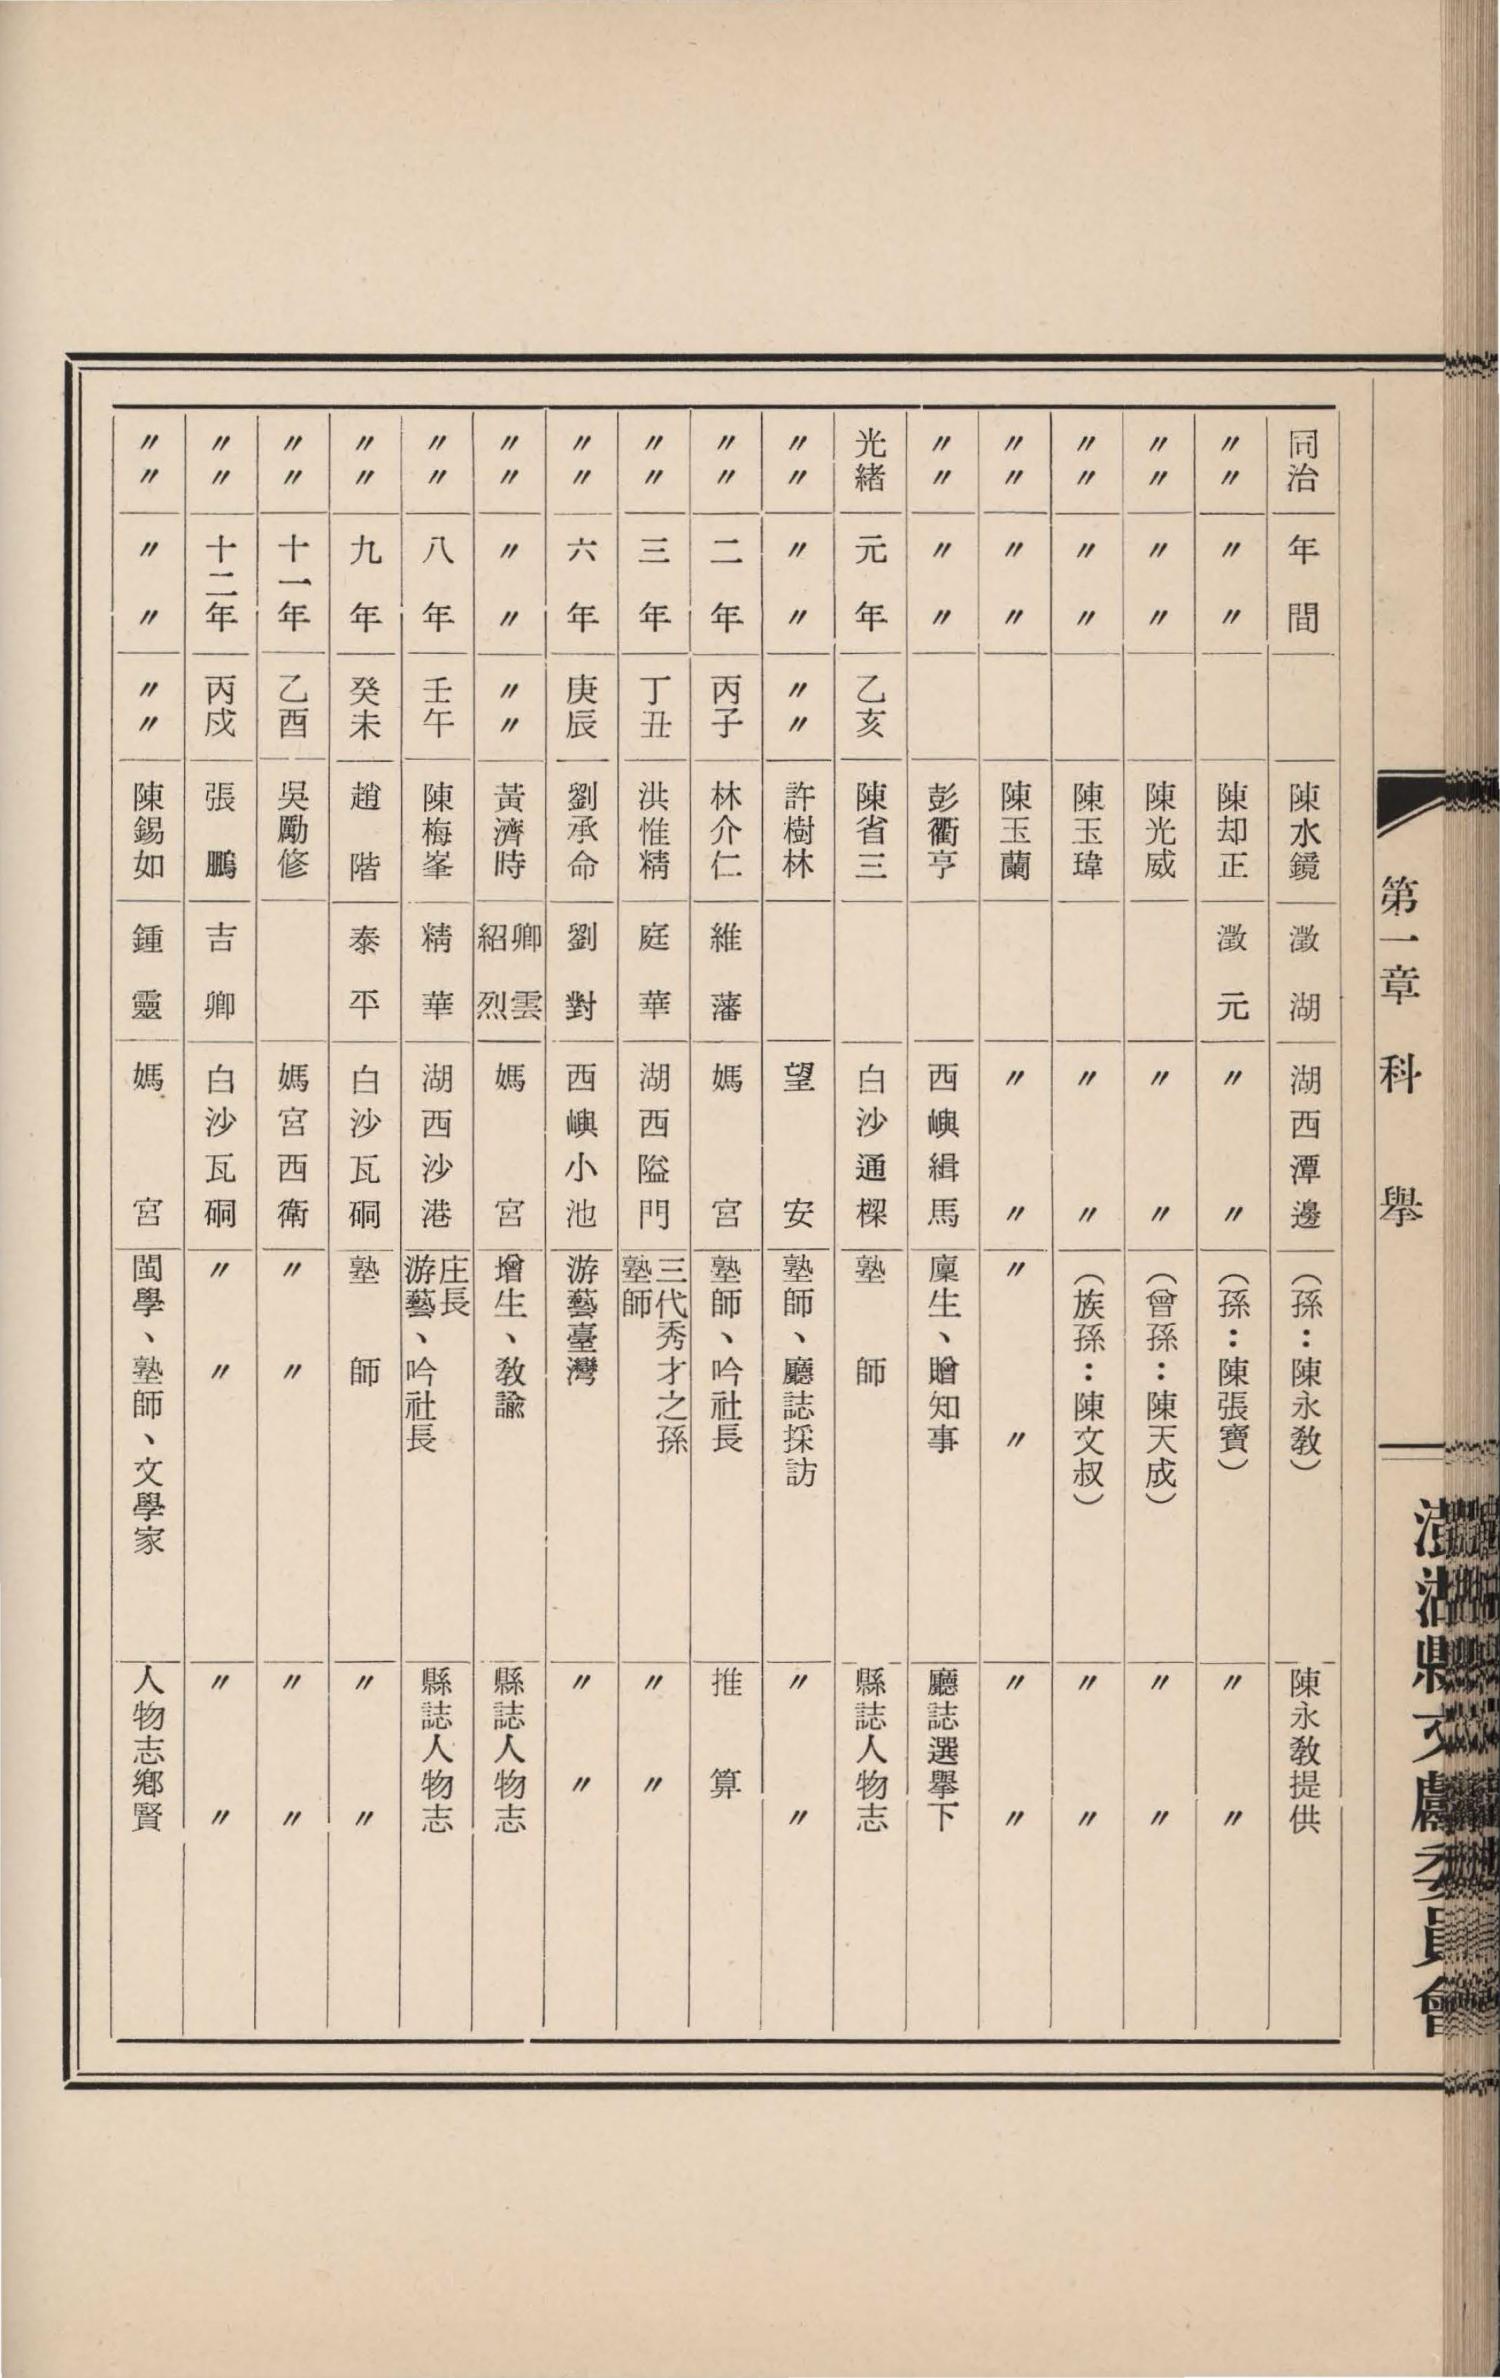 第一章 科 擧
澎湖縣文獻委員會
同治 年間 陳水鏡 澂湖 湖西潭邊 （孫：陳永敎） 陳永敎提供
〃〃 〃〃 陳却正 澂元 〃〃 （孫：陳張寶） 〃〃
〃〃 〃〃 陳光威 〃〃 （曾孫：陳天成） 〃〃
〃〃 〃〃 陳玉瑋 〃〃 （族孫：陳文叔） 〃〃
〃〃 〃〃 陳玉蘭 〃〃 〃〃 〃〃
〃〃 〃〃 彭衢亨 西嶼緝馬 廩生、贈知事 廳誌選擧下
光緒 元年 乙亥 陳省三 白沙通樑 塾師 縣誌人物志
〃〃 〃〃 〃〃 許樹林 望安 塾師、廳誌採訪 〃〃
〃〃 二年 丙子 林介仁 維藩 媽宮 塾師、吟社長 推算
〃〃 三年 丁丑 洪惟精 庭華 湖西隘門 三代秀才之孫 塾師 〃〃
〃〃 六年 庚辰 劉承命 劉對 西嶼小池 游藝臺灣 〃〃
〃〃 〃〃 〃〃 黃濟時 卿雲 紹烈 媽宮 增生、敎諭 縣誌人物志
〃〃 八年 壬午 陳梅峯 精華 湖西沙港 庄長 游藝、吟社長 縣誌人物志
〃〃 九年 癸未 趙階 泰平 白沙瓦硐 塾師 〃〃
〃〃 十一年 乙酉 吳勵修 媽宮西衛 〃〃 〃〃
〃〃 十二年 丙戍 張鵬 吉卿 白沙瓦硐 〃〃 〃〃
〃〃 〃〃 〃〃 陳錫如 鍾靈 媽宮 閩學、塾師、文學家 人物志鄕賢